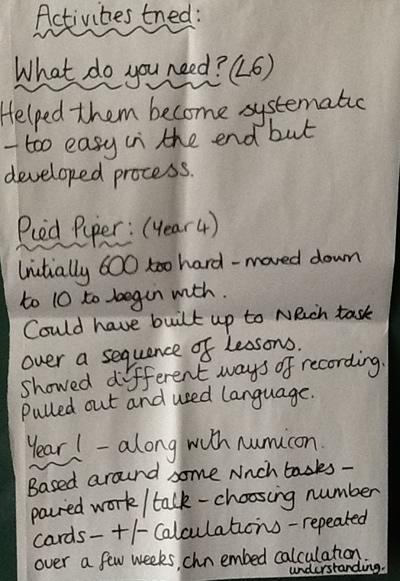 Activities tried:
What do you need? (L6)
Helped them become systematic
- too easy in the end but
developed process.
Pied Piper: (Year 4)
Initially 600 too hard - moved down
to 10 to begin with.
Could have built up to NRich task
over a sequence of lessons.
Showed different ways of recording.
Pulled out and used language.
Year 1 - along with numicon.
Based around some Nrich tasks -
paired work/talk - choosing number
cards - +/- Calculations - repeated
over a few weeks, chn embed calculation
understanding.